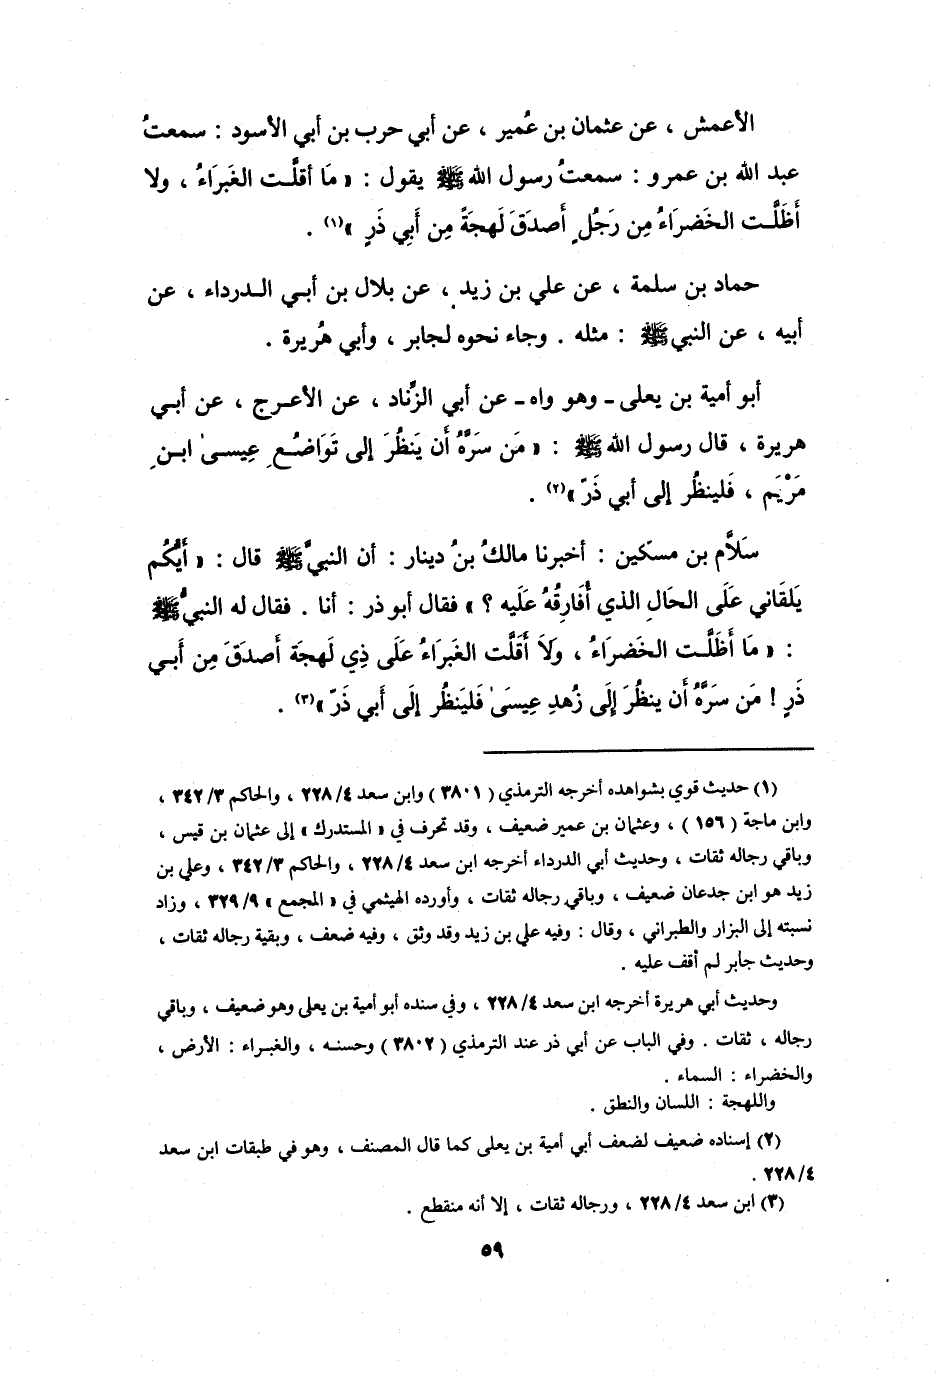 الأعمش ، عن عثمان بن عُمير ، عن أبي حرب بن أبي الأسود : سمعتُ
عبد الله بن عمرو : سمعتُ رسول الله ﷺ يقول : « مَا أقلَّت الغَبرَاءُ ، ولا
أَظَلَّت الخَضرَاءُ مِن رَجُلٍ أَصدَقَ لَهجَةً مِن أَبِي ذَرٍ »(١) .
حماد بن سلمة ، عن علي بن زيد ، عن بلال بن أبي الدرداء ، عن
أبيه ، عن النبي ﷺ : مثله . وجاء نحوه لجابر ، وأبي هُريرة .
أبو أمية بن يعلى - وهو واه - عن أبي الزِّناد ، عن الأعرج ، عن أبي
هريرة ، قال رسول الله ﷺ : « مَن سَرَّهُ أَن يَنظُرَ إلى تَوَاضُعِ عِيسىٰ ابنِ
مَرْيَم ، فَلينظُر إلى أبي ذَرّ »(٢) .
سَلاَّم بن مسكين : أخبرنا مالكُ بنُ دينار : أن النبيَّ ﷺ قال : « أَيُّكُم
يَلقَاني عَلَى الحَالِ الذي أُفَارِقُهُ عَلَيه ؟ » فقال أبو ذر : أنا . فقال له النبيُّ ﷺ
: « مَا أَظَلَّت الخَضرَاءُ ، وَلاَ أَقَلَّت الغَبرَاءُ عَلَى ذِي لَهجَة أَصدَقَ مِن أَبي
ذَرٍ ! مَن سَرَّهُ أَن ينظُرَ إِلَى زُهدِ عِيسَىٰ فَليَنظُر إلَى أَبي ذَرّ »(٣) .
(١) حديث قوي بشواهده أخرجه الترمذي ( ٣٨٠١ ) وابن سعد ٤/ ٢٢٨ ، والحاكم ٣/ ٣٤٢ ،
وابن ماجة ( ١٥٦ ) ، وعثمان بن عمير ضعيف ، وقد تحرف في « المستدرك » إلى عثمان بن قيس ،
وباقي رجاله ثقات ، وحديث أبي الدرداء أخرجه ابن سعد ٤/ ٢٢٨ ، والحاكم ٣/ ٣٤٢ ، وعلي بن
زيد هو ابن جدعان ضعيف ، وباقي رجاله ثقات ، وأورده الهيثمي في « المجمع » ٩/ ٣٢٩ ، وزاد
نسبته إلى البزار والطبراني ، وقال : وفيه علي بن زيد وقد وثق ، وفيه ضعف ، وبقية رجاله ثقات ،
وحديث جابر لم أقف عليه .
وحديث أبي هريرة أخرجه ابن سعد ٤/ ٢٢٨ ، وفي سنده أبو أمية بن يعلى وهو ضعيف ، وباقي
رجاله ، ثقات . وفي الباب عن أبي ذر عند الترمذي ( ٣٨٠٢ ) وحسنه ، والغبراء : الأرض ،
والخضراء : السماء .
واللهجة : اللسان والنطق .
(٢) إسناده ضعيف لضعف أبي أمية بن يعلى كما قال المصنف ، وهو في طبقات ابن سعد
٤/ ٢٢٨ .
(٣) ابن سعد ٤/ ٢٢٨ ، ورجاله ثقات ، إلا أنه منقطع .
٥٩